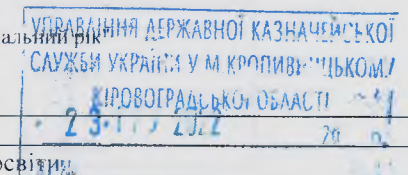 альний рік"
УПРАВЛІННЯ ДЕРЖАВНОЇ КАЗНАЧЕЙСЬКОЇ
СЛУЖБИ УКРАЇНИ У М КРОПИВНИЦЬКОМУ
КІРОВОГРАДСЬКОЇ ОБЛАСТІ
23
20 р.
освіти